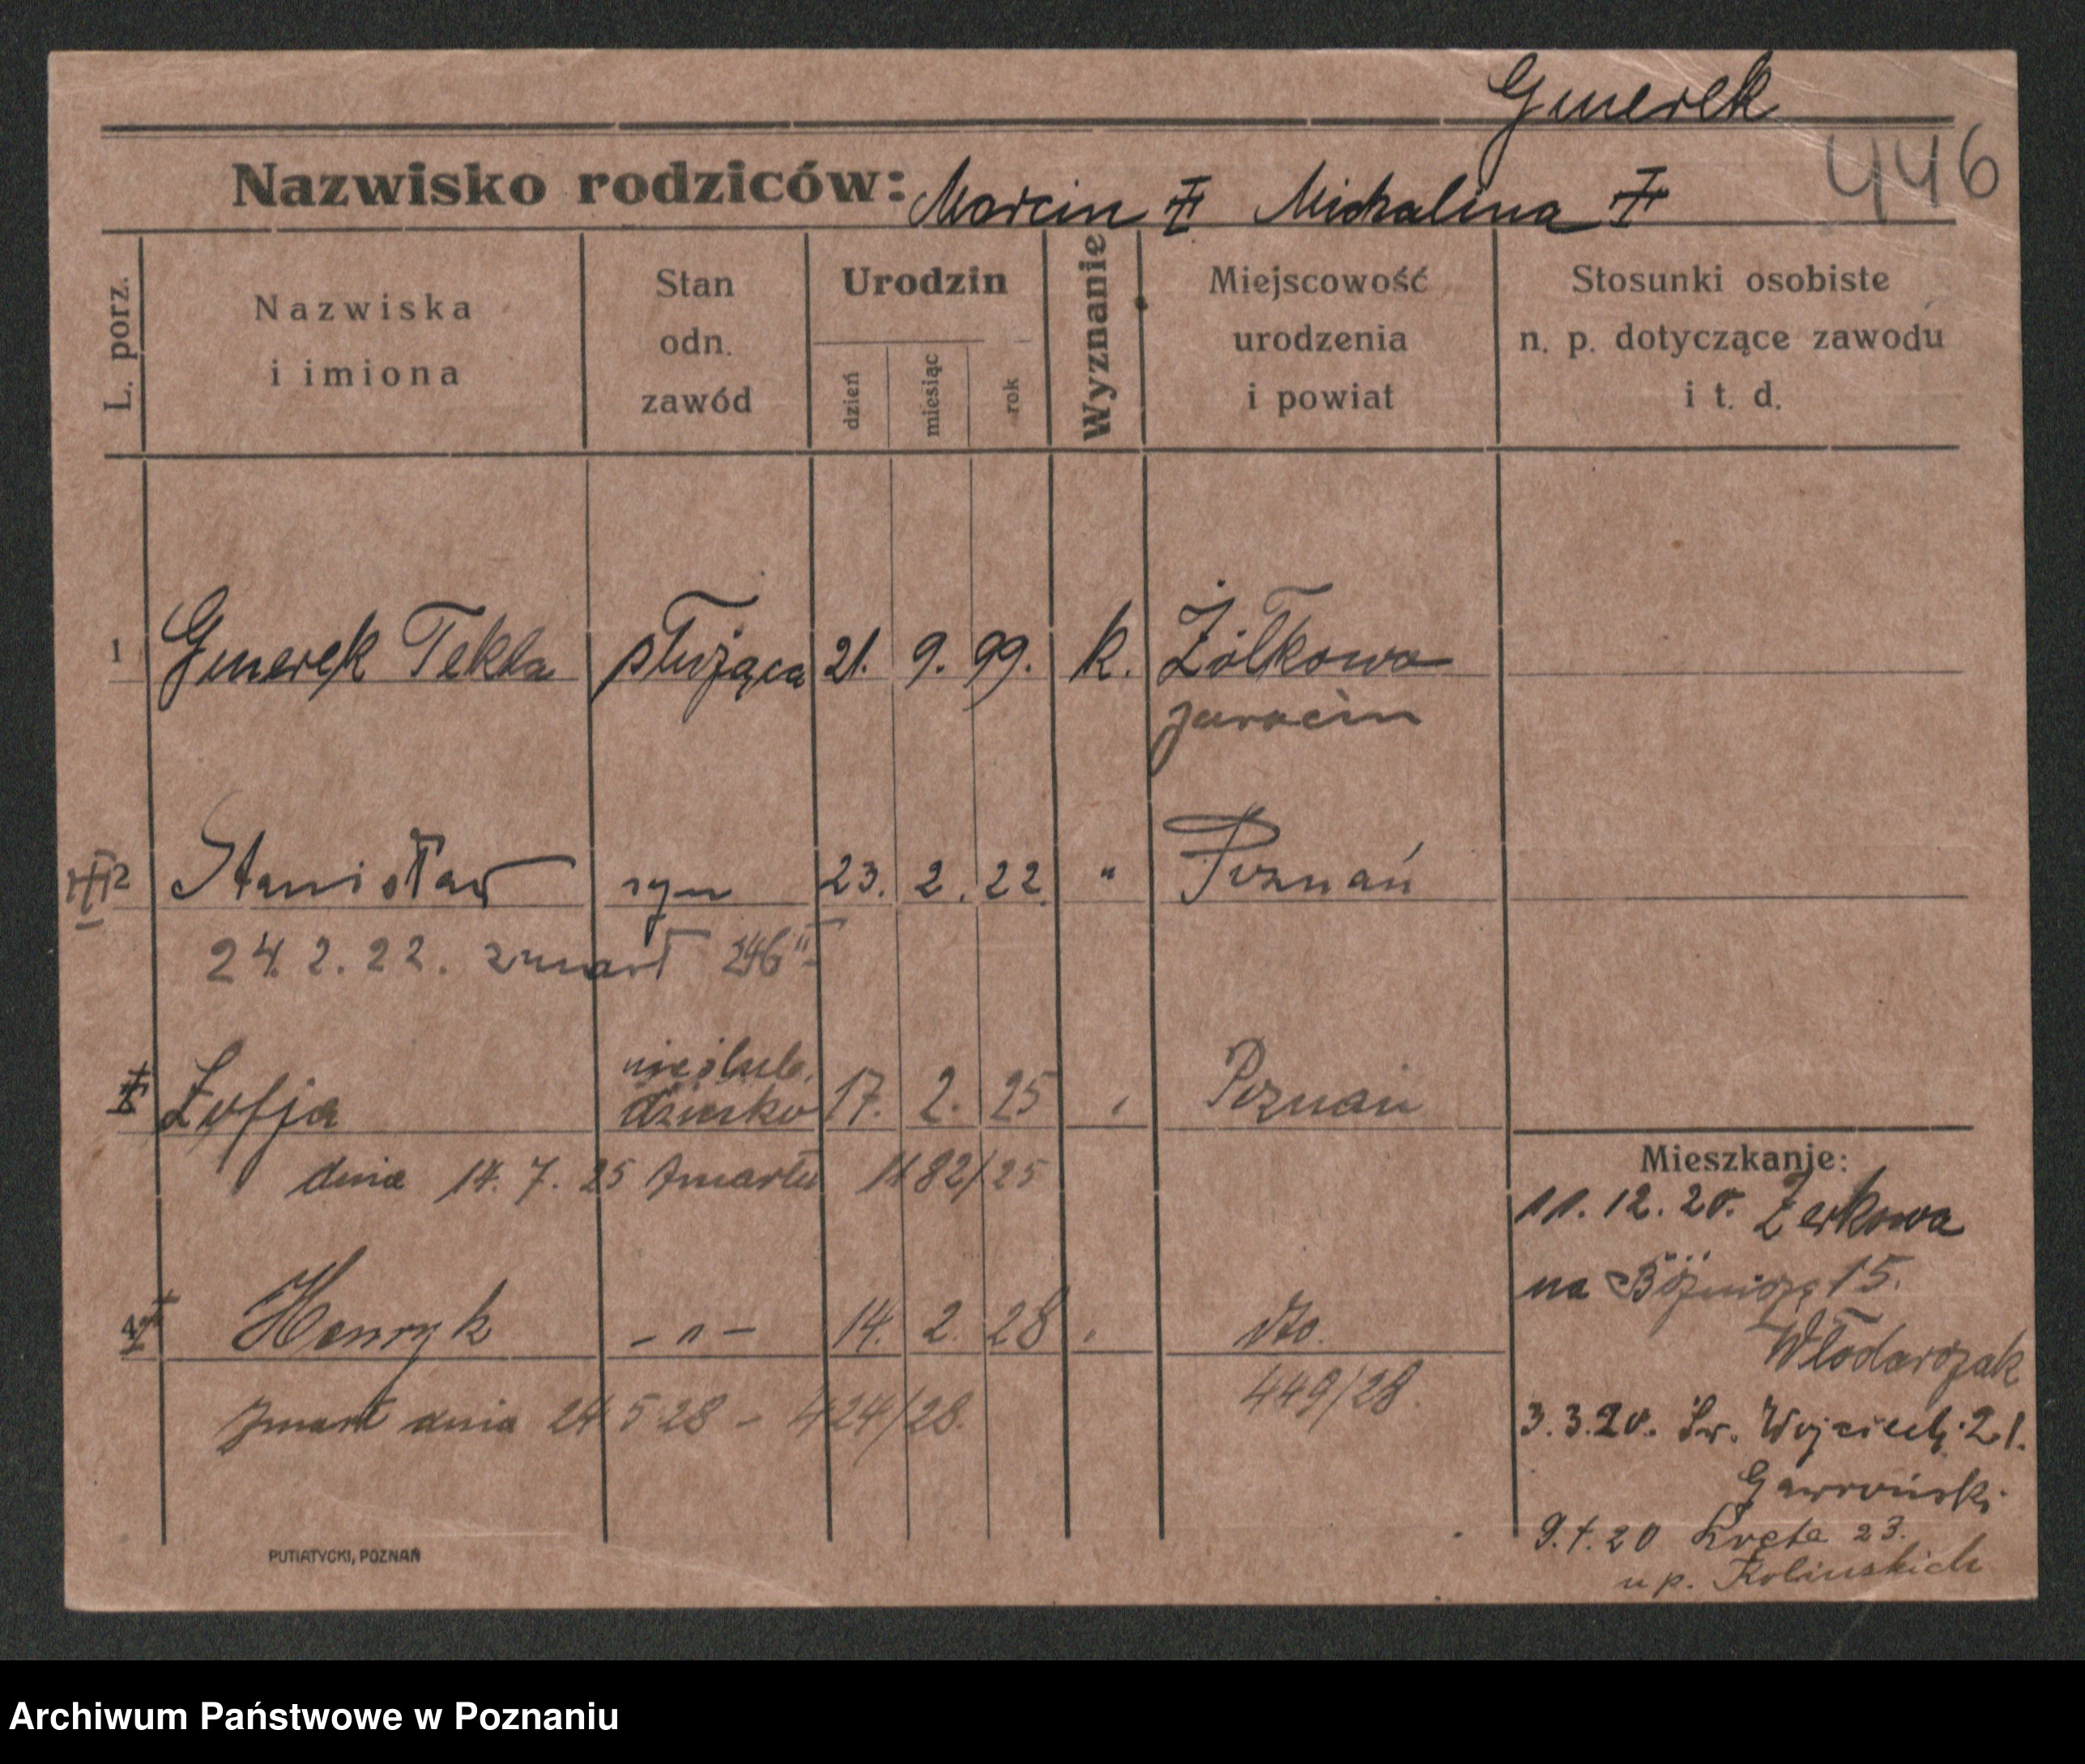 Gmerek
446
Nazwisko rodziców: Marcin Michalina
L. porz.
Nazwiska
i imiona
Stan
odn.
zawód
Urodzin
dzień
miesiąc
rok
Wyznanie
Miejscowość
urodzenia
i powiat
Stosunki osobiste
n. p. dotyczące zawodu
i t. d.
1 Gmerek Tekla służąca 21. 9. 99. k. Żółkowa
Jarocin
2 Stanisław syn 23. 2. 22 " Poznań
24. 2. 22. zmarł 246
nieślub.
Zofja dziecko 17. 2. 25 " Poznań
dnia 14. 7. 25 zmarła 1182/25
4 Henryk - " - 14. 2. 28 " dto.
449/28.
zmarł dnia 24 5 28 - 424/28.
Mieszkanie:
11. 12. 20. Żerkowa
na Bóżnicza 15.
Włodarczak
3. 3. 20. Św. Wojciech. 21.
Gawroński
23.
u p. Kolinskich
PUTIATYCKI, POZNAŃ
Archiwum Państwowe w Poznaniu